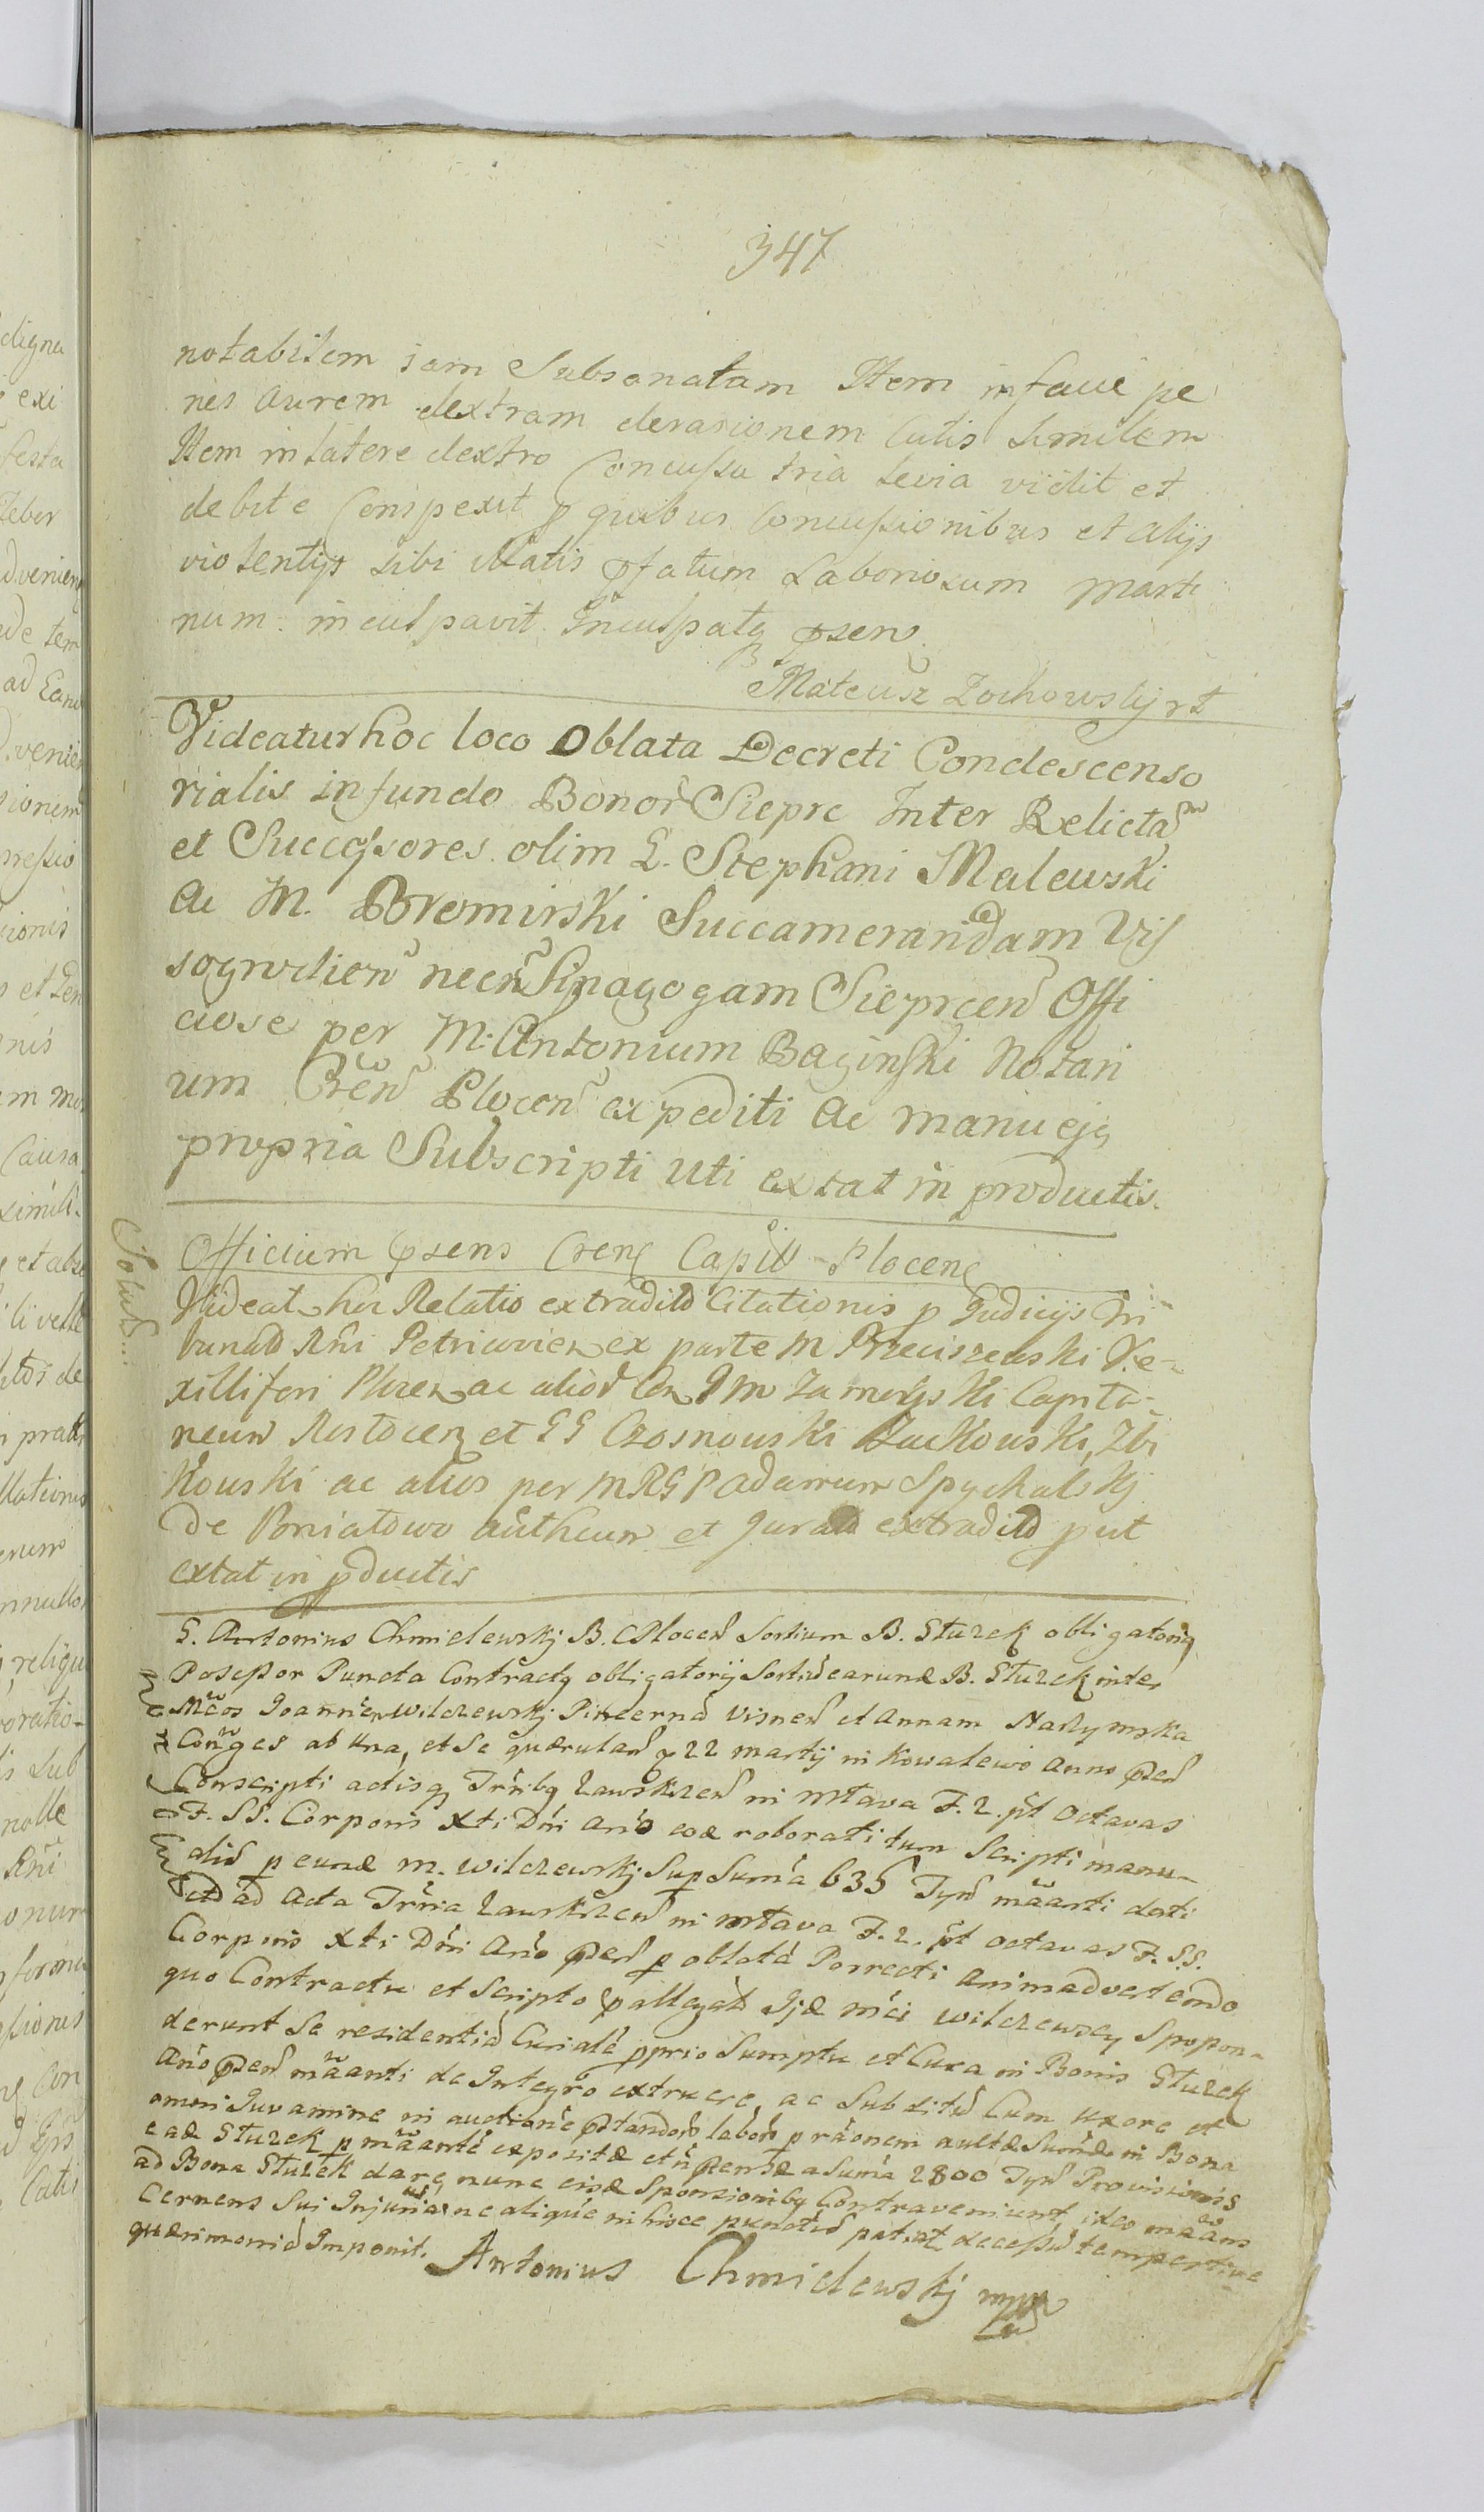 347
notabilem jam Subsanatam Item in facie pe
nes aurem dextram derasionem cutis Similem
Item in latere dextro Concussa tria levia vidit et
debite Conspexit p quibus Concussionibus et alijs
violentijs sibi illatis pfatum Laboriosum Marti
num inculpavit Inculpatq psens
Mateusz Zochowskj rt
Videatur hoc loco Oblata Decreti Condescenso
rialis in fundo Bonor Sieprc Inter Relictam
et Successores olim G. Stephani Malewski
ac M. Bromirski Succamerandam Vis
sogrodien necn Sinagogam Sieprcen Offi
ciose per M. Antonium Baginski Notari
um Cren Plocen expediti ac manu ejq
propria Subscripti uti extat in productis.
Officium psens Cren Capit Plocen
Videat hic Relatio extradit Citationis p Judicijs Tri
bunal Rni Petricovien ex parte M Przeciszewski Ve-
xilliferi Plocen ac alior Con J M Zamoyski Capita-
neum Rostocen et GG Czosnowski Zuckowski, Zbi
kowski ac alios per MRGP adamum Spychalskj
de Poniatowo authcum et Jurat extradit put
extat in pductis
G. Antonius Chmielewskj B. C Plocen Sortium B. Sturek obligatoriq
Possessor Puncta Contractq obligatorij Sortiu earund B. Sturek inter
Mcos Joannem Wilczewskj Pincerna Visnen et Annam Narzymska
Conges ab una, et Se querulan 22 martij in Kowalewo Anno psen
Conscripti actisq Trribq Zawskrzen in Mtava F. 2. pt Octavas
F. SS. Corporis Xti Dni Ano eod roborati tum Scripti manu-
alis p eund M. Wilczewskj Sup Suma 635 Tyn maanti dati
et ad Acta Trria Zawskrzen in Mtava F. 2. pt octavas F. SS.
Corporis Xti Dni Ano psen p oblata Porrecti animadvertendo
quo Contractu et Scripto pallegat Ijd mci Wilczewscy Spopon-
derunt Se residentia Curiale pprio Sumptu et Cura in Bonis Sturek
Ano psen maanti de Integro extruere, ac Subditu Cum uxore et
omni Juvamine in auctione pstandor labor p raonem auctæ Sumæ in Bona
ead Sturek p maante expositæ et n pensæ a Suma 2800 Tyn Provisionis
ad Bona Sturek dare, nunc eisd Sponsionibq Contraveniunt, ideo maans
Cernens Sui Injuria ne aliqué in hisce punctis patiat decessu tempestive
querimonia Imponit.
Antonius Chmielewskj mpp